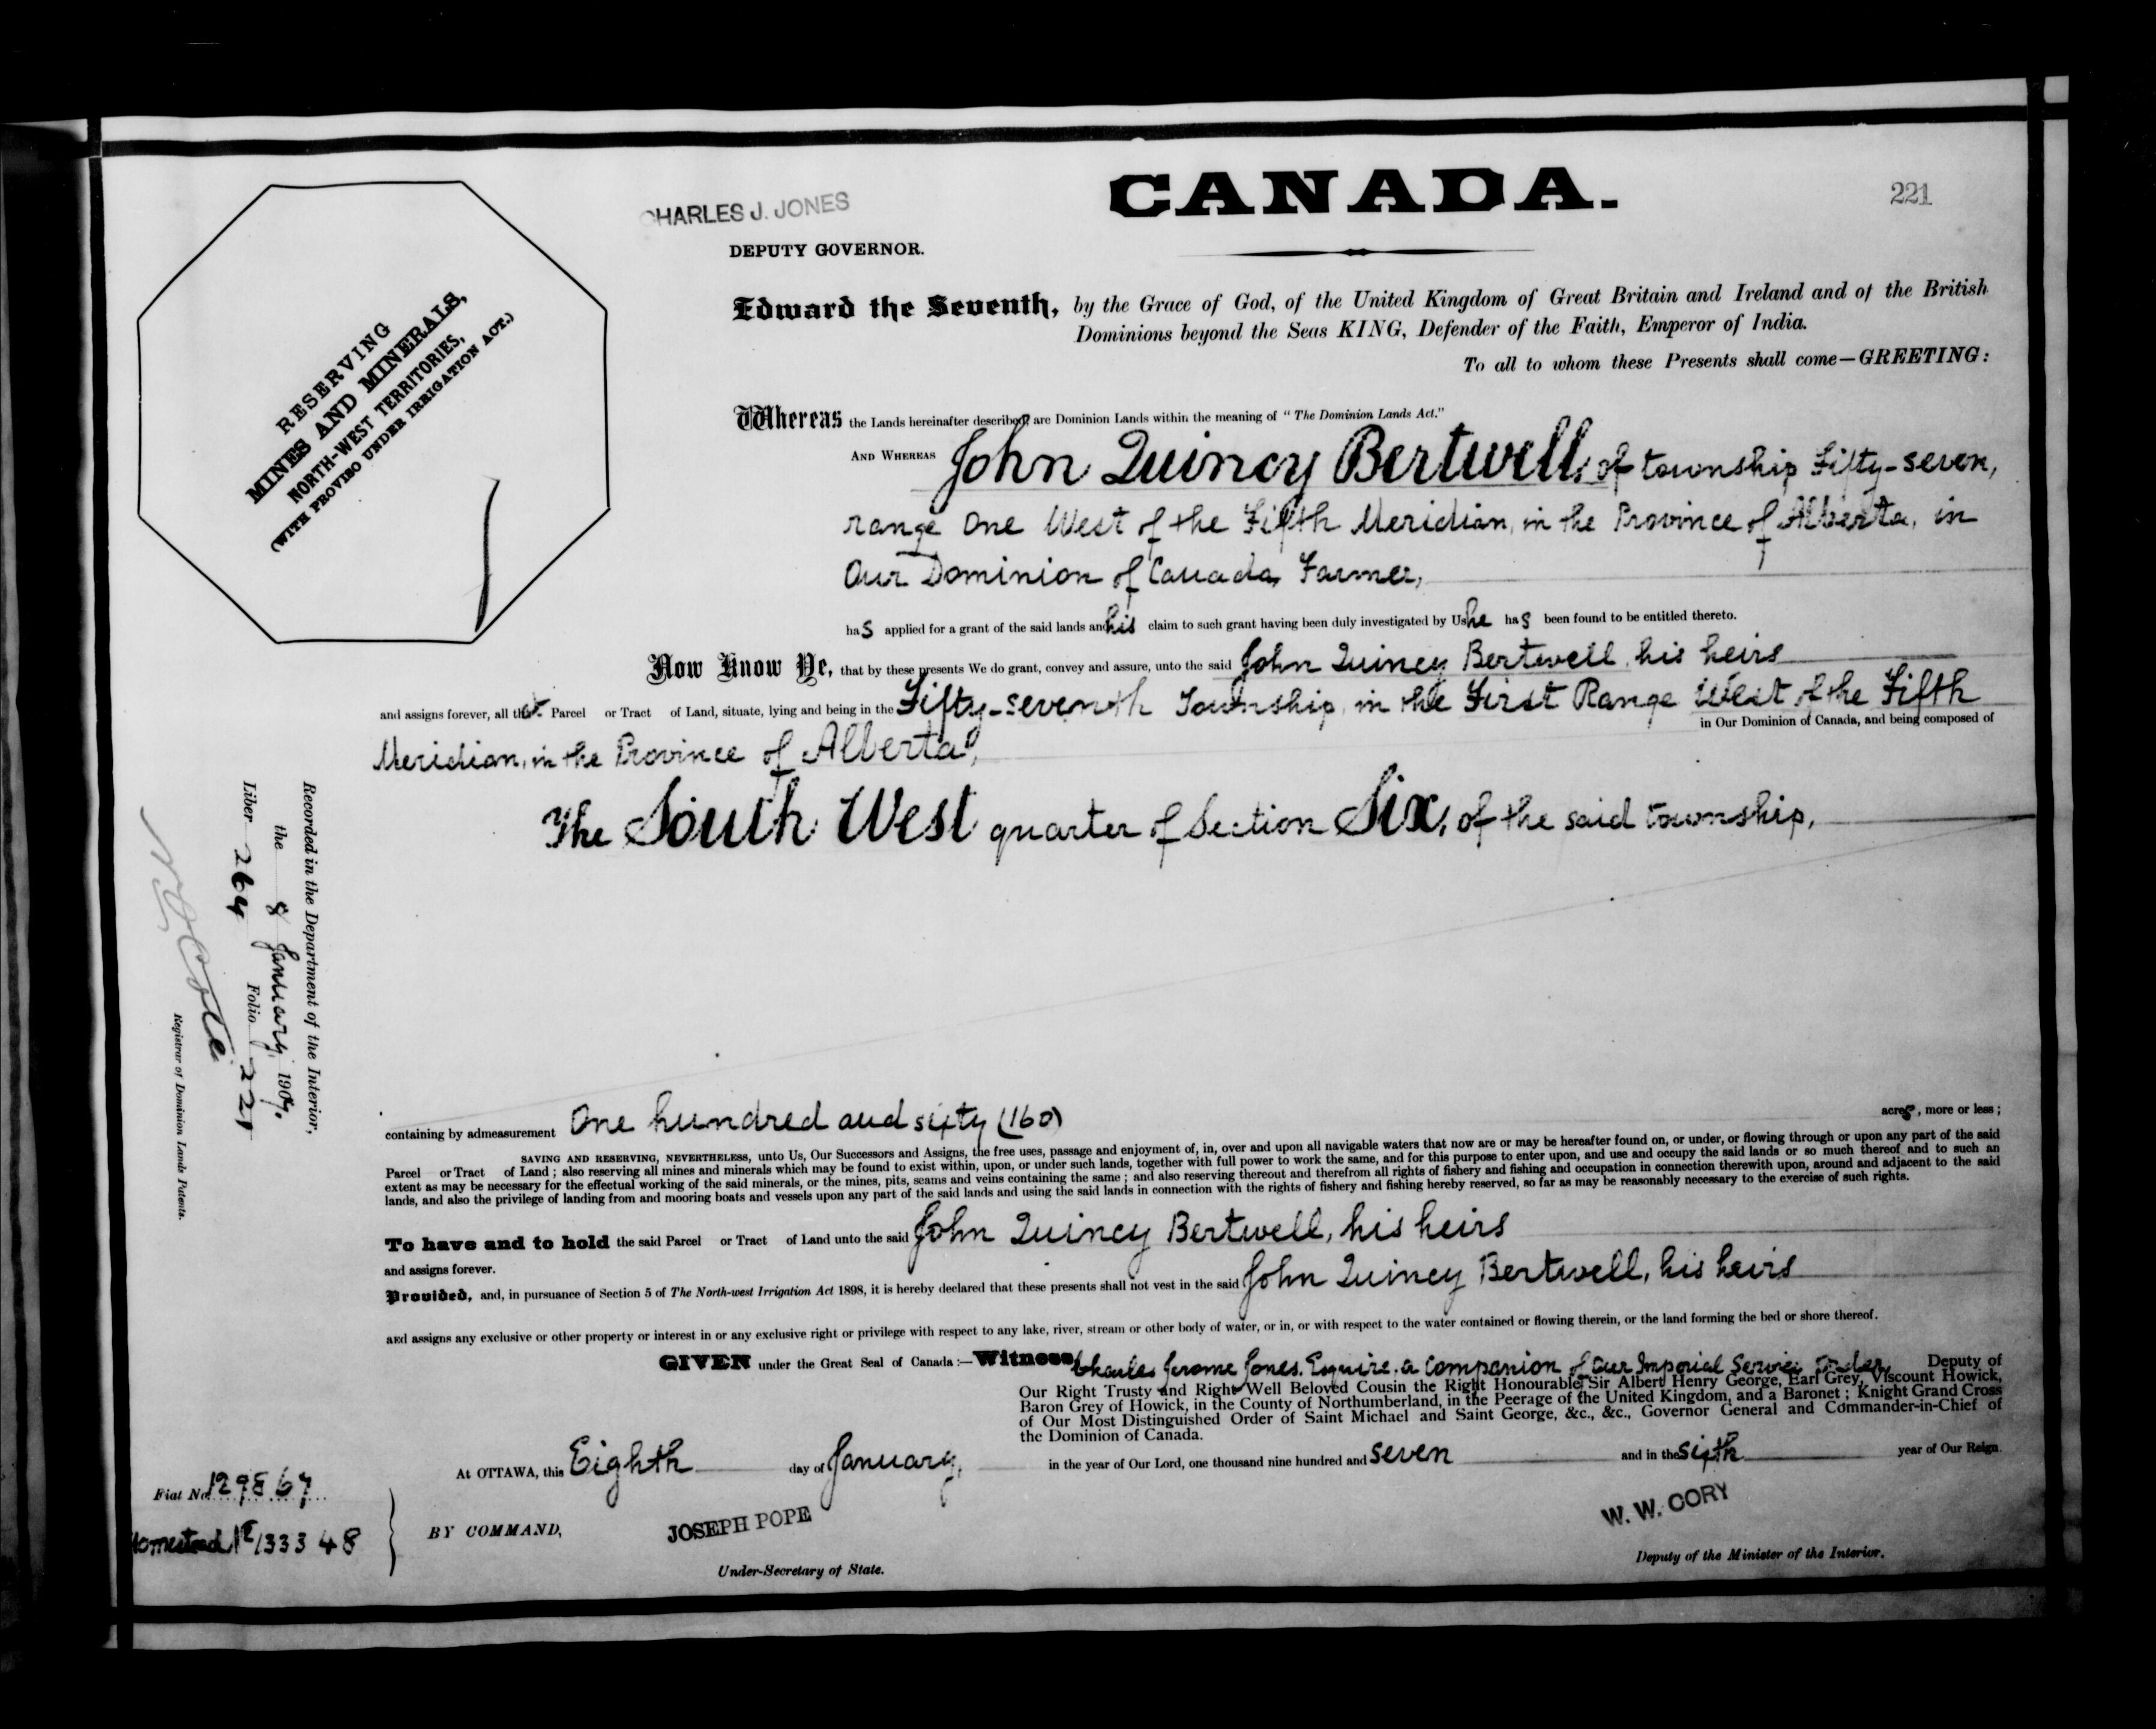 CANADA.
221
CHARLES J. JONES
DEPUTY GOVERNOR.
RESERVING
MINES AND MINERALS,
NORTH-WEST TERRITORIES,
(WITH PROVISO UNDER IRRIGATION ACT.)
Edward the Seventh, by the Grace of God, of the United Kingdom of Great Britain and Ireland and of the British
Dominions beyond the Seas KING, Defender of the Faith, Emperor of India.
To all to whom these Presents shall come—GREETING:
Whereas the Lands hereinafter described are Dominion Lands within the meaning of "The Dominion Lands Act."
AND WHEREAS John Quincy Bertwell, of township Fifty-seven,
range One West of the Fifth Meridian, in the Province of Alberta, in
Our Dominion of Canada, Farmer,
has applied for a grant of the said lands and his claim to such grant having been duly investigated by Us he has been found to be entitled thereto.
Now Know Ye, that by these presents We do grant, convey and assure, unto the said John Quincy Bertwell, his heirs
and assigns forever, all that Parcel or Tract of Land, situate, lying and being in the Fifty-seventh Township, in the First Range West of the Fifth
in Our Dominion of Canada, and being composed of
Meridian, in the Province of Alberta,
The South West quarter of Section Six, of the said township,
containing by admeasurement One hundred and sixty (160) acres, more or less;
SAVING AND RESERVING, NEVERTHELESS, unto Us, Our Successors and Assigns, the free uses, passage and enjoyment of, in, over and upon all navigable waters that now are or may be hereafter found on, or under, or flowing through or upon any part of the said
Parcel or Tract of Land; also reserving all mines and minerals which may be found to exist within, upon, or under such lands, together with full power to work the same, and for this purpose to enter upon, and use and occupy the said lands or so much thereof and to such an
extent as may be necessary for the effectual working of the said minerals, or the mines, pits, seams and veins containing the same; and also reserving thereout and therefrom all rights of fishery and fishing and occupation in connection therewith upon, around and adjacent to the said
lands, and also the privilege of landing from and mooring boats and vessels upon any part of the said lands and using the said lands in connection with the rights of fishery and fishing hereby reserved, so far as may be reasonably necessary to the exercise of such rights.
To have and to hold the said Parcel or Tract of Land unto the said John Quincy Bertwell, his heirs
and assigns forever.
Provided, and, in pursuance of Section 5 of The North-west Irrigation Act 1898, it is hereby declared that these presents shall not vest in the said John Quincy Bertwell, his heirs
and assigns any exclusive or other property or interest in or any exclusive right or privilege with respect to any lake, river, stream or other body of water, or in, or with respect to the water contained or flowing therein, or the land forming the bed or shore thereof.
GIVEN under the Great Seal of Canada:—Witness Charles Jerome Jones, Esquire, a Companion of Our Imperial Service Order, Deputy of
Our Right Trusty and Right Well Beloved Cousin the Right Honourable Sir Albert Henry George, Earl Grey, Viscount Howick,
Baron Grey of Howick, in the County of Northumberland, in the Peerage of the United Kingdom, and a Baronet; Knight Grand Cross
of Our Most Distinguished Order of Saint Michael and Saint George, &c., &c., Governor General and Commander-in-Chief of
the Dominion of Canada.
At OTTAWA, this Eighth day of January, in the year of Our Lord, one thousand nine hundred and seven and in the sixth year of Our Reign.
Fiat No. 129867
Homestead No 133348
BY COMMAND,
JOSEPH POPE
Under-Secretary of State.
W. W. CORY
Deputy of the Minister of the Interior.
Recorded in the Department of the Interior,
the 8 January, 1907,
Liber 264 Folio 221
N. O. Coté
Registrar of Dominion Lands Patents.